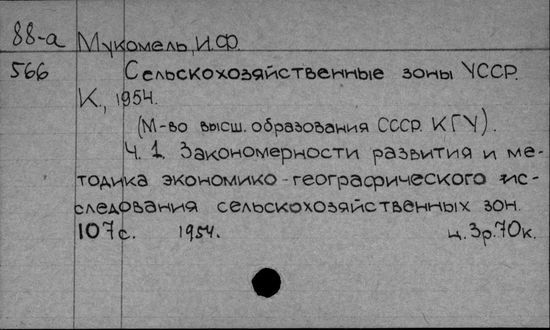 88-а Мукомель, И.Ф.
566 Сельскохозяйственные зоны УССР.
К., 1954.
(М-во высш. образования СССР. КГУ).
Ч. 1. Закономерности развития и ме-
тодика экономико-географического ис-
следования сельскохозяйственных зон.
107с. 1954. ц. 3р.70к.